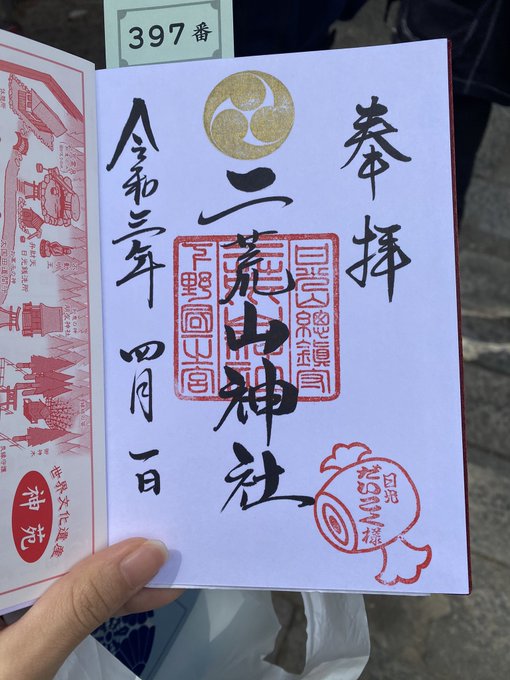 397番
奉拝
日光山總鎮守
二荒山神社
下野國一宮
令和三年 四月一日
日光
だいこく様
世界文化遺産
神苑